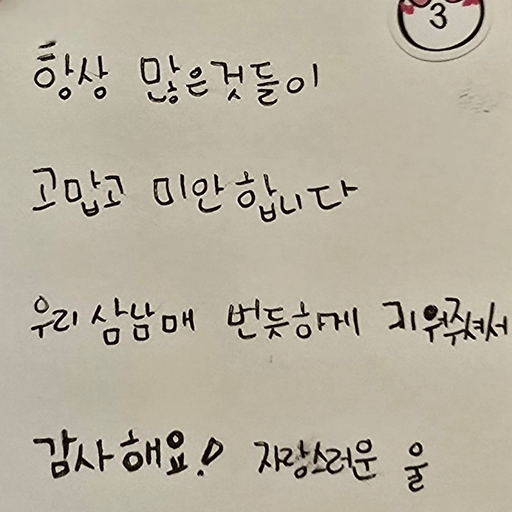 3
항상 많은것들이
고맙고 미안합니다
우리 삼남매 번듯하게 키워주셔서
감사해요! 자랑스러운 울